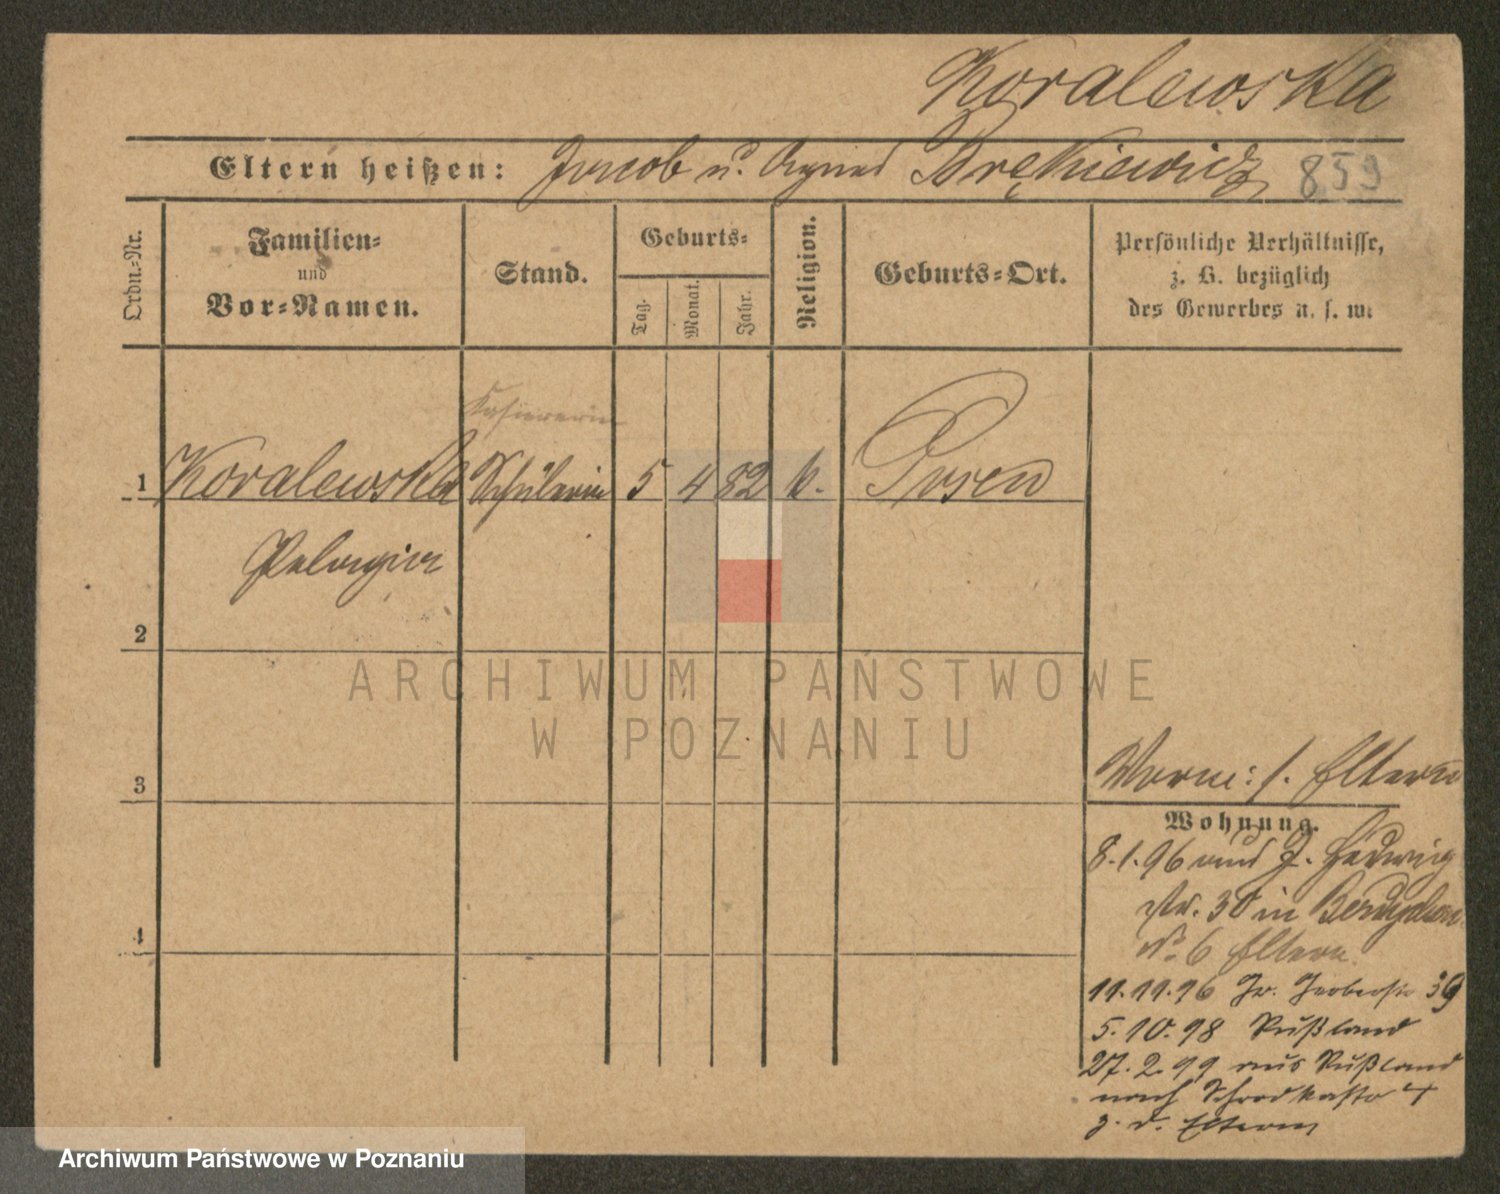 Koralewska
Eltern heißen: Jacob u. Agnes Brękiewicz 859
Ordn.-Nr.
Familien- und Vor-Namen.
Stand.
Geburts-
Tag.
Monat.
Jahr.
Religion.
Geburts-Ort.
Persönliche Verhältnisse,
z. B. bezüglich
des Gewerbes u. s. w.
Kassiererin
1 Koralewska Schülerin 5 4 82 k. Posen
Pelagia
2
3
4
ARCHIWUM PAŃSTWOWE
W POZNANIU
s. Eltern
Wohnung.
8.1.96 Hedwig
str. 30 in
No 6 Eltern
11.11.96 39
5.10.98 Rußland
27.2.99 aus Rußland
nach Schrodkastr 4
z. d. Eltern
Archiwum Państwowe w Poznaniu